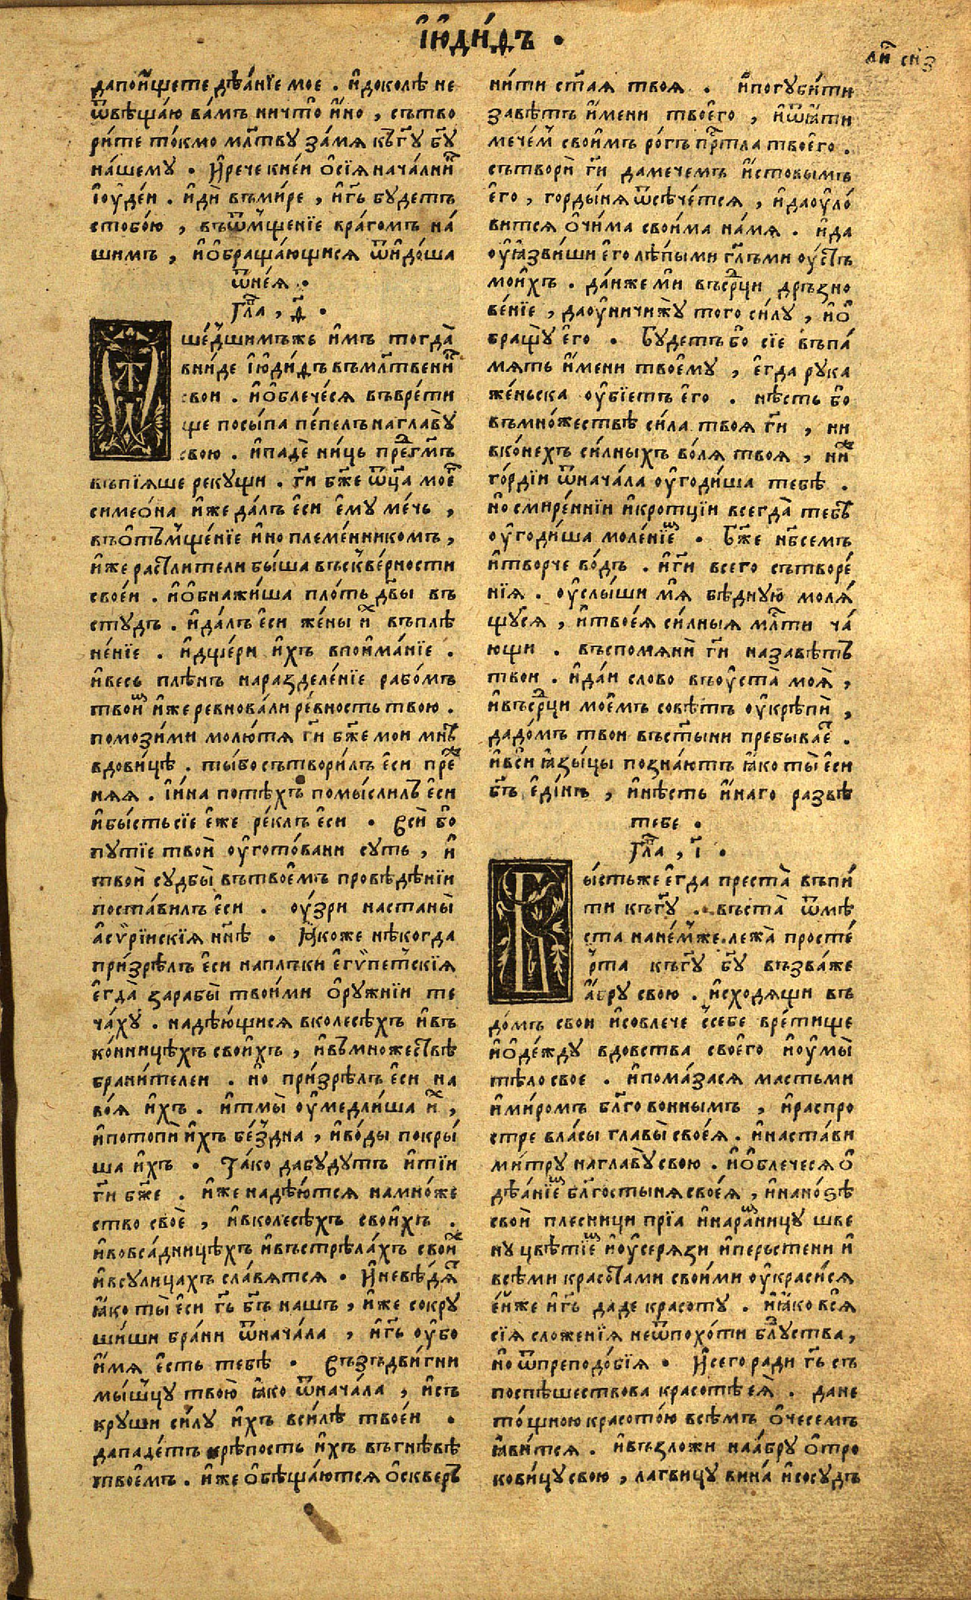 і҆ю҆ди́ѳъ .
ли҃ си҃з
дапои́щете дѣѧ́нїе мое . и҆доколѣ не
ѿвѣщаю ва́мъ ничто̀ и҆но , сътво
ри́те то́кмо мл҃тву за́мѧ къг҃у бг҃у
на́шему . И҆рече кне́и о҆сїѧ нача́лни҃
і҆оу҆де́и . и҆дѝ въми́ре , и҆г҃ь будетъ
стобо́ю , въѿмще́нїе враго́мъ на́
шимъ , и҆о҆браща́ющисѧ ѿидо́ша
ѿнеѧ̀ .
Гл҃а , ѳ҃ .
шє́дшимъже и҆мъ тогда̀
вни́де і҆ю҆ди́ѳъ въмл҃твени҃
свои . и҆о҆блече́сѧ въвре́ти
ще посы́па пе́пелъ наглавꙋ̀
свою . и҆падѐ ни́ць пре́гм҃ъ
въпїѧше рекущи . гн҃и бж҃е ѿц҃а мое҃
симео́на и҆же да́лъ є҆си є҆му ме́чь ,
въо́тъмще́нїе и҆но племе́нникомъ ,
и҆же растли́тели бы́ша въскве́рности
свое́и . и҆о҆бнажи́ша пло́ть дв҃ы въ
сту́дъ . и҆да́лъ є҆си же́ны и҆х въплѣ
не́нїе . и҆дще́ри и҆хъ впои҆ма́нїе .
и҆весь плѣ́нъ наразделе́нїе рабо́мъ
твои҆м и҆же ревнова́ли ре́вность твою .
помози́ми молю́тѧ гн҃и бж҃е мои мнѣ̀
вдови́цѣ . ты́бо сътвори́лъ є҆си пре҃
нѧѧ . і҆и́на пот҃ѣхъ помы́слилъ є҆си
и҆бы́сть сїе є҆же ре́клъ є҆си . Єси́ бо
путїе твои̏ оу҆гото́вани суть , и҆
твои̏ судбы̏ въ твое҆мъ провѣ́дѣ́нїи
поста́вилъ є҆си . оу҆зри настаны̀
а҆сѵ́ри́нскїѧ нн҃ѣ . Ꙗ҆коже нѣ́когда
при́зрѣлъ є҆си наплъки є҆гѵ́петскїѧ
є҆гда̀ зарабы̏ твои́ми о҆ру́жнїи те
ча́ху . надѣ́ющисѧ вколесѣ́хъ и҆въ
ко́нницѣхъ свои́хъ , и҆въмно́жествѣ
брани́телеи . но при́зрѣлъ є҆си на
во́ѧ и҆хъ . и҆тмы̀ оу҆медли́ша и҆х ,
и҆потопи̏ и҆хъ бе́здна , и҆во́ды покры́
ша и҆хъ . Та́ко дабу́дутъ и҆тїи
гн҃и бж҃е . и҆же надѣ́ютсѧ намно́же
ство свое̏ , и҆вколесѣ́хъ свои́хъ .
и҆вобса́дницѣхъ и҆въстрѣла́хъ свои҆х
и҆всу́лицахъ сла́вѧтсѧ . И҆неве́дѧ҃
ꙗ҆ко ты̀ є҆си г҃ь бг҃ъ нашъ , и҆же сокру
ша́ши бра́ни ѿнача́ла , и҆г҃ь оу҆бо
и҆мѧ є҆сть тебѣ̀ . Въздви́гни
мы́шцу твою̀ ꙗ҆ко ѿнача́ла , и҆съ
круши си́лу и҆хъ вси́лѣ твое́и .
дападе́тъ крѣ́пость и҆хъ въгнѣ́вѣ
твое҆мъ . и҆же о҆бѣща́ютсѧ о҆скверъ
ни́ти ст҃аѧ твоѧ . и҆погуби́ти
завѣ́тъ и҆мени твое҆го , и҆ѿꙗ́ти
мече́м свои́мъ ро́гъ пр҃тла твое҆го .
сътвори̏ гн҃и дамече́мъ и҆стовымъ
є҆го , горды́нѧ ѿсѣче́тсѧ , и҆даоу҆ло́
витсѧ о҆чи́ма свои́ма на́мѧ . и҆да
оу҆ꙗзви́ши є҆го лѣ́пыми гл҃ъми оу҆стъ
мои́хъ . да́нже ми въсрц҃и дръзно
ве́нїе , даоу҆ничижу̀ того си́лу , и҆о҆
бращу̀ є҆го . Будетъ бо сїе въпа́
мѧть и҆мени твое҆му , є҆гда рука
же́ньска оу҆бїетъ є҆го . нѣ́сть бо
въмно́жествѣ си́ла твоѧ гн҃и , ни
вко́нехъ си́лныхъ во́лѧ твоѧ , ни҆ж
го́рдїи ѿнача́ла оу҆годи́ша тебѣ̀ .
но смире́ннїи и҆кротцїи всегда̀ тебѣ̀
оу҆годи́ша моле́нїем . Бж҃е нб҃семъ
и҆тво́рче во́дъ . и҆гн҃и всего сътворе́
нїѧ . оу҆слы́ши мѧ̀ бѣ́дную молѧ́
щуюсѧ , и҆твое́ѧ си́лныѧ мл҃ти ча́
ющи . въспомѧни̏ гн҃и назавѣ́тъ
твои . и҆да́и слово въоу҆ста̀ моѧ̀ ,
и҆въсрц҃и мое́мъ совѣ́тъ оу҆крѣпи̏ ,
дадо́мъ твои въст҃ы́ни пребывае҃ .
и҆вси̏ ꙗ҆зы́цы позна́ютъ ꙗ҆ко ты̀ є҆си
бг҃ъ є҆ди́нъ , и҆нѣ́сть и҆на́го развѣ
тебе .
Гл҃а , і҃ .
ы́стьже є҆гда преста̀ въпи́
ти къг҃у . въста̀ ѿмѣ́
ста на не́мже лежа̀ просте́
рта къг҃у бг҃у възва́же
а҆бру свою . и҆сходѧщи въ
до́мъ свои и҆совлече ѿсебе вре́тище
и҆о҆де́жду вдовства своего и҆оу҆мы̀
тѣ́ло свое . и҆пома́засѧ мастьми
и҆ми́ромъ бл҃говоннымъ , и҆распро
стре вла́сы главы̀ своеѧ . и҆наста́ви
ми́тру наглавꙋ̀ свою . и҆о҆блечесѧ о҆
дѣѧ́нїем бл҃госты́нѧ своеѧ , и҆нано́ѕѣ
свои̏ плесни́ци прїа и҆нара́мницу шве
ну цвѣ́тїем и҆оу҆серѧзи и҆перьстени и҆
всѣ́ми красота́ми свои́ми оу҆краси́сѧ
є҆и́же и҆г҃ь даде красоту . и҆ꙗ҆ко всѧ̀
сїѧ сложе́нїѧ неѿпо́хоти блу҃ства ,
но ѿпреподо́бїѧ . И҆сего ради г҃ь съ
поспѣ́шествова красотѣ еѧ̀ . дане
то́щною красото́ю всѣ́мъ о҆чесемъ
ꙗ҆ви́тсѧ . и҆възложи наа́бру о҆тро
кови́цу свою , лагви́цу вина̀ и҆сосу́дъ